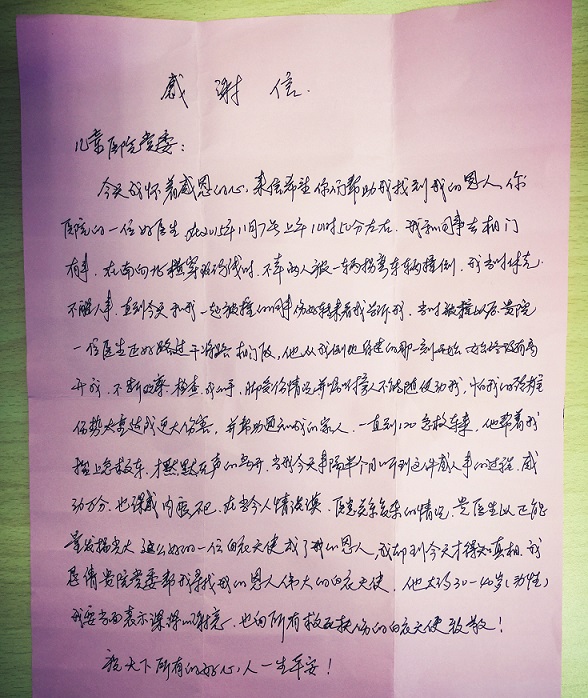 感谢信.
儿童医院党委:
今天我怀着感恩的心,来信希望你们帮助我找到我的恩人,你
医院的一位好医生,在2015年11月7号上午10时50分左右,我和同事去相门
有事,在南向北横穿斑马线时,不幸两人被一辆拐弯车辆撞倒,我当时休克
不醒人事,直到今天和我一起被撞的同事伤好转来看我告诉我,当时被撞以后,贵院
一位医生正好路过干将路相门段,他从我倒地的那一刻开始始终没有离
开我,不断观察,检查我的手,脚受伤情况并嘱咐旁人不能随便动我,怕我的颈椎
伤势太重造成更大伤害,并帮助通知我的家人,一直到120急救车来,他帮着我
抬上急救车,才默默无声的离开,当我今天事隔半个月听到这件感人事的过程,感
动万分,也深感内疚不已,在当今人情淡漠,医患关系复杂的情况,贵医生以正能
量发扬光大,这么好的一位白衣天使成了我的恩人,我却到今天才得知真相,我
恳请贵院党委帮我寻找我的恩人伟大的白衣天使,他大约30-40岁(男性)
我要当面表示深深的谢意,也向所有救死扶伤的白衣天使致敬!
祝天下所有的好心人一生平安!